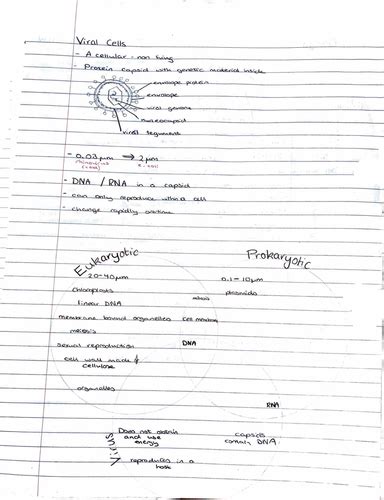 Viral Cells
- Acellular - non living
- Protein capsid with genetic material inside
envelope protein
envelope
viral genome
nucleocapsid
viral tegument
- 0.03μm → 2μm
- DNA / RNA in a capsid
- can only reproduce within a cell
- change rapidly overtime
Eukaryotic Prokaryotic
20-40μm 0.1-10μm
chloroplasts plasmids
linear DNA
membrane bound organelles cell membrane
meiosis
sexual reproduction DNA
cell wall made of
cellulose
organelles
RNA
Does not obtain capsids
and use contain DNA
energy
reproduces in a
host